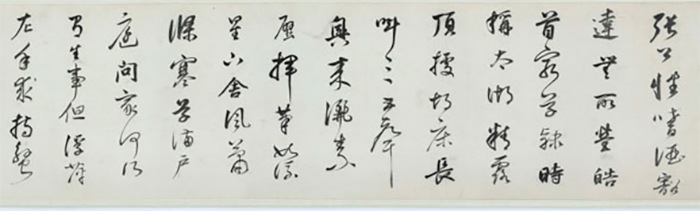 張公性嗜酒豁
達無所營皓
首窮草隸時
稱太湖精露
頂據胡床長
叫三五聲
興來灑素
壁揮筆如流
星下舍風蕭
條寒草滿戶
庭問家何所
有生事但浮萍
左手持蟹